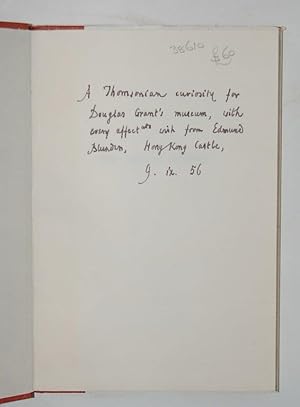 38610 £60
A Thomsonian curiosity for
Douglas Grant's museum, with
every affectate wish from Edmund
Blunden, Hong Kong Castle,
9. ix. 56